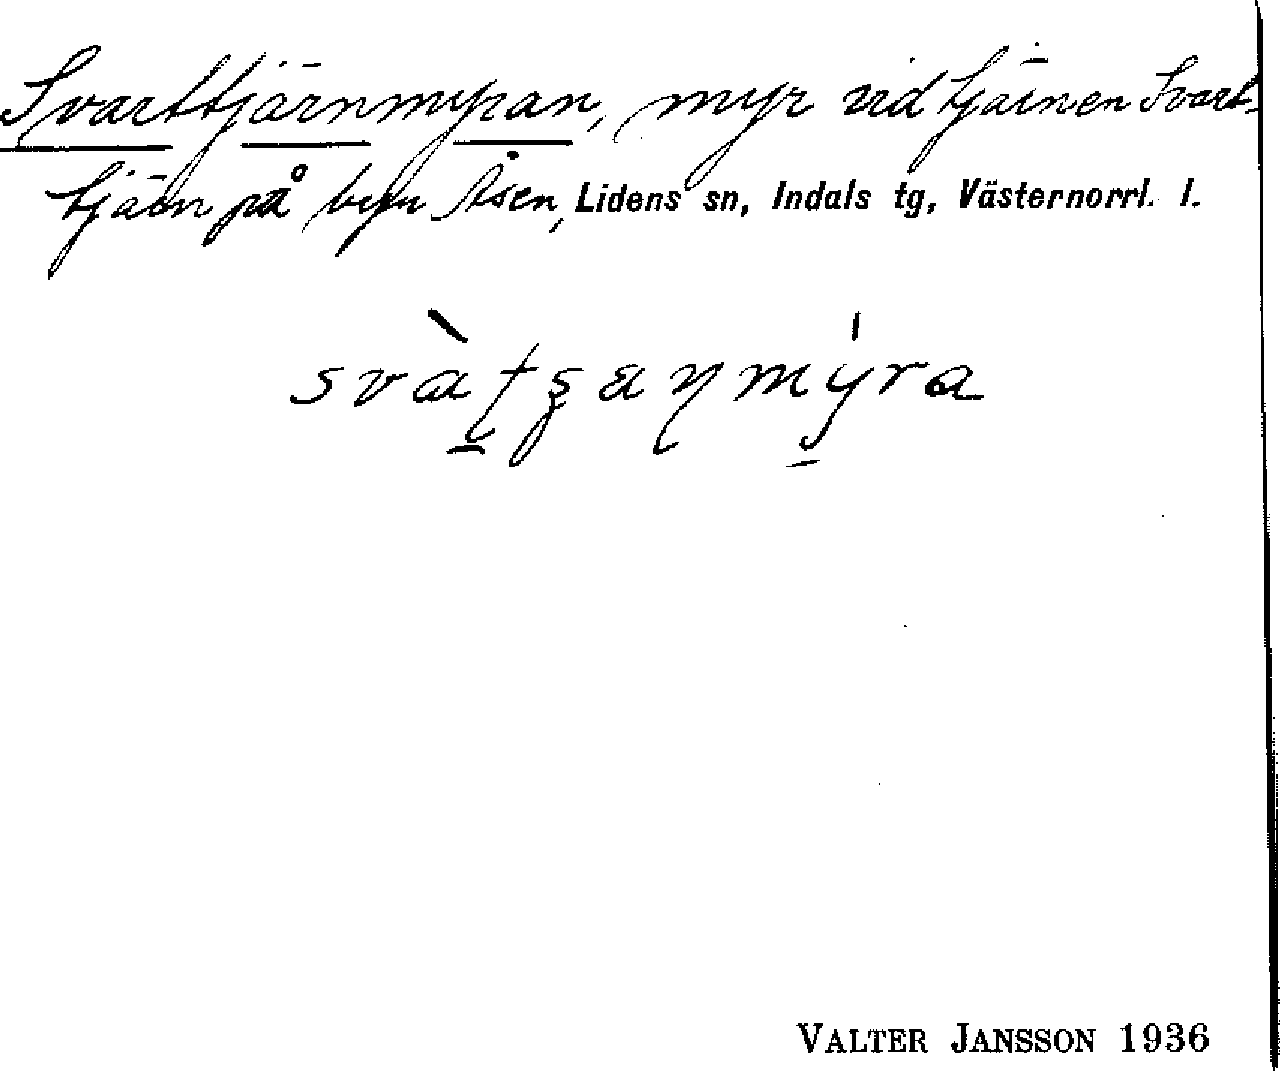 Svarttjärnmyran, myr vid tjärnen Svart-
tjärn på byn Åsen, Lidens sn, Indals tg, Västernorrl. l.
svàtşæɳmýra
VALTER JANSSON 1936